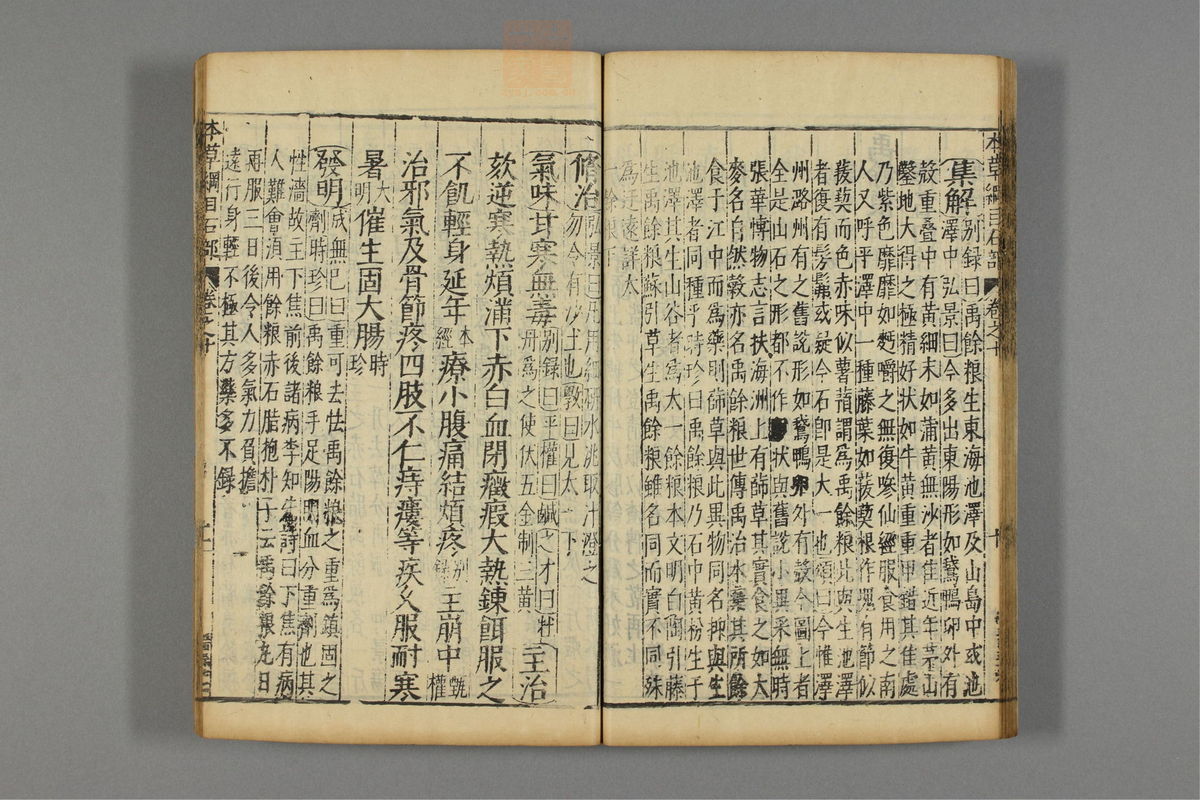 本草綱目石部 卷之十
集解別録曰禹餘粮生東海池澤及山島中或池
澤中弘景曰今多出東陽形如鵞鴨卵外有
殻重疊中有黄細末如蒲黄無沙者佳近年茅山
鑿地大得之極精好狀如牛黄重重甲錯其佳處
乃紫色靡靡如麪嚼之無復磣仙經服食用之南
人又呼平澤中一種藤葉如菝葜根作塊有節似
菝葜而色赤味似薯蕷謂爲禹餘粮此與生池澤
者復有髣髴或疑今石即是太一也頌曰今惟澤
州潞州有之舊說形如鵞鴨卵外有殻今圖上者
全是山石之形都不作卵狀與舊說小異采無時
張華博物志言扶海洲上有蒒草其實食之如大
麥名自然穀亦名禹餘粮世傳禹治水棄其所餘
食于江中而爲藥則蒒草與此異物同名抑與生
池澤者同種乎時珍曰禹餘粮乃石中黄粉生于
池澤其生山谷者爲太一餘粮本文明白陶引藤
生禹餘粮蘇引草生禹餘粮雖名同而實不同殊
爲迂遠詳太
一餘粮下
脩治弘景曰凡用細研水洮取汁澄之
勿令有沙土也斆曰見太一下
氣味甘寒無毒別録曰平權曰鹹之才曰牡
丹爲之使伏五金制三黄主治
欬逆寒熱煩滿下赤白血閉癥瘕大熱鍊餌服之
不飢輕身延年本經療小腹痛結煩疼別録主崩中甄權
治邪氣及骨節疼四肢不仁痔瘻等疾久服耐寒
暑大明催生固大腸時珍
發明成無己曰重可去怯禹餘粮之重爲鎮固之
劑時珍曰禹餘粮手足陽明血分重劑也其
性濇故主下焦前後諸病李知先詩曰下焦有病
人難會須用餘粮赤石脂抱朴子云禹餘粮丸日
再服三日後令人多氣力負擔
遠行身輕不極其方藥多不録
本草綱目石部 卷之十